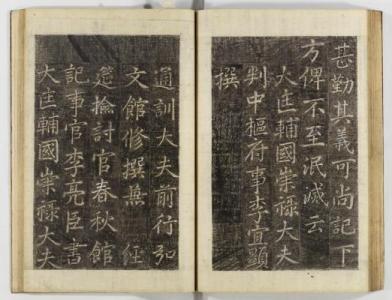 甚勤其義可尚記下
方俾不至泯滅云
大匡輔國崇祿大夫
判中樞府事李宜顯
撰
通訓大夫前行弘
文館修撰兼 經
筵檢討官春秋館
記事官李亮臣書
大匡輔國崇祿大夫